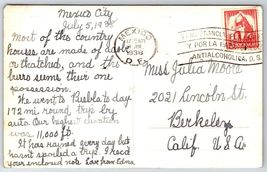 Mexico City
July 5, 1938
Most of the country
houses are made of adobe
or thatched, and the
burro seems their one
possession.
We went to Puebla to-day
172 mi. round trip by
auto. Our highest elevation
was 11,000 ft.
It has rained every day but
hasn't spoiled a trip. I rec'd
your enclosed note. Love from Edna.
MEXICO
1938
D. F.
Y POR LA
ANTIALCOHOLICA, D. S.
Miss Julia Moore
2021 Lincoln St.
Berkeley
Calif. U.S.A.